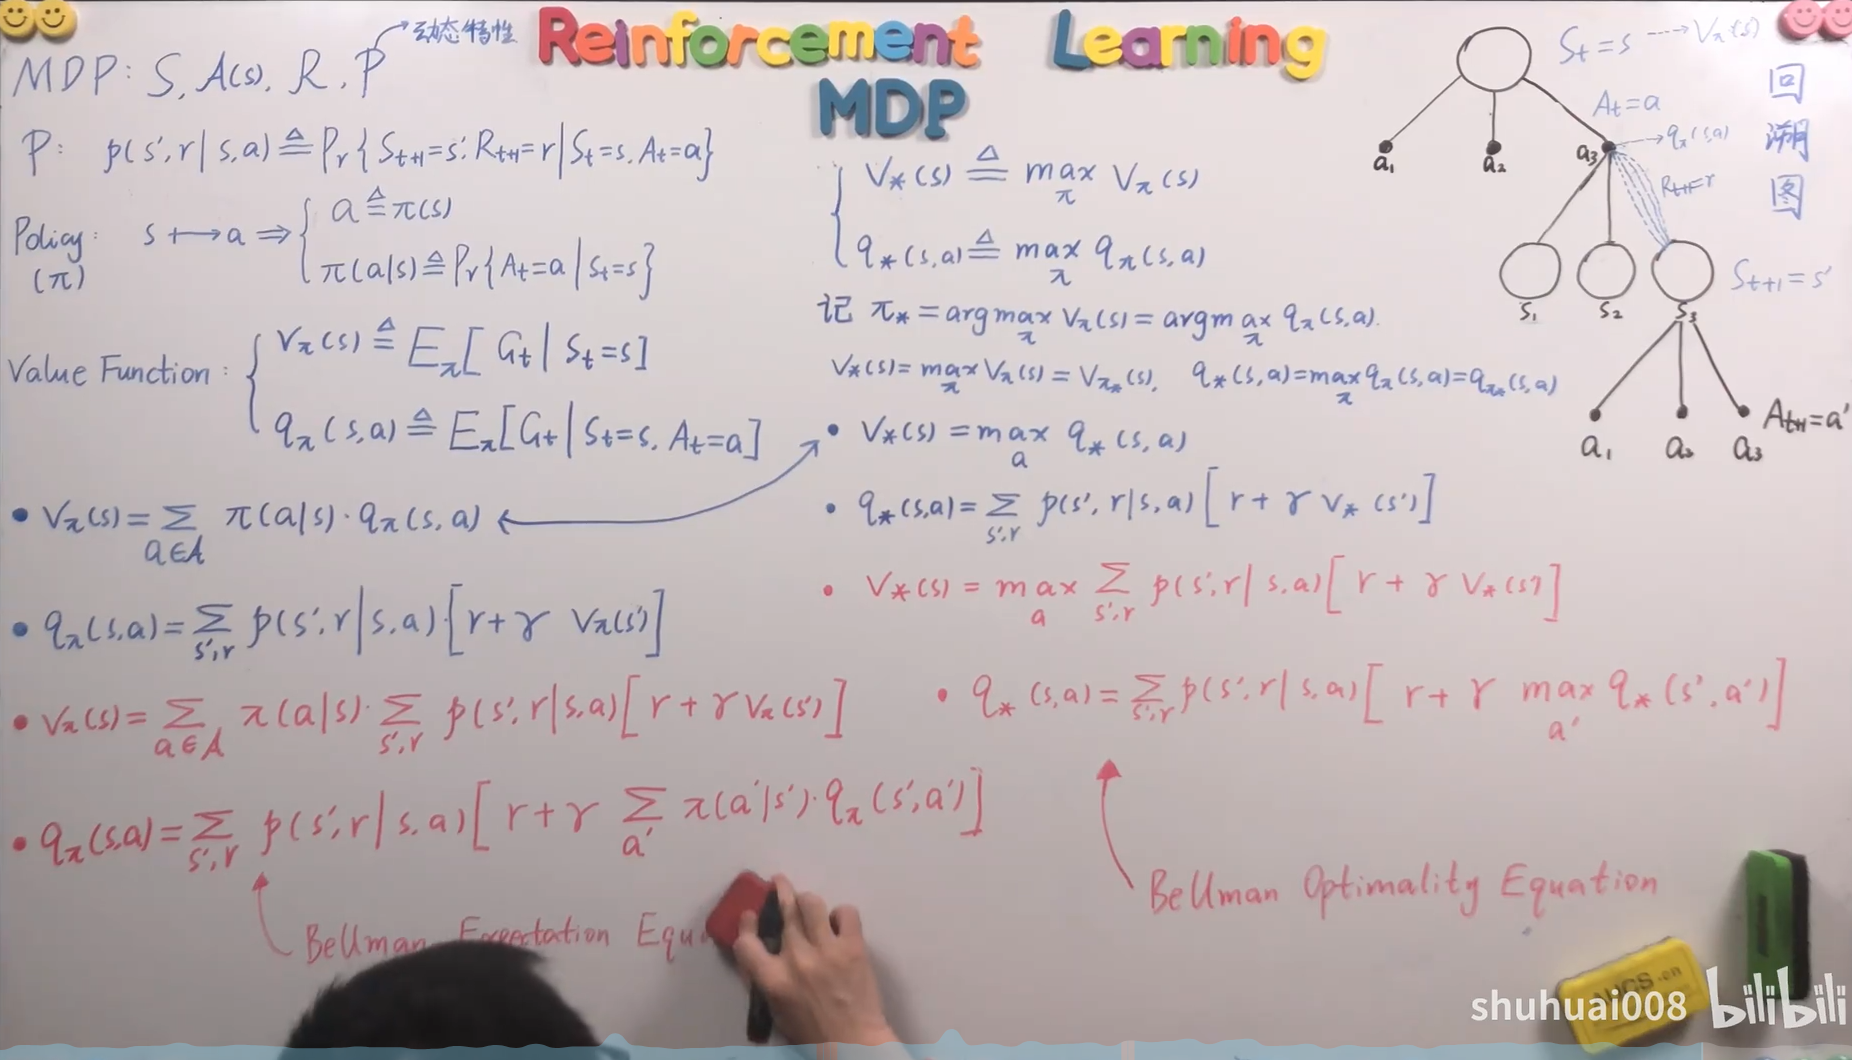 Reinforcement Learning
MDP
MDP: S, A(s), R, P → 动态特性
P: p(s', r | s, a) ≜ Pr{S_{t+1}=s', R_{t+1}=r | S_t=s, A_t=a}
Policy: (π) s ⟼ a ⇒ { a ≜ π(s)
π(a|s) ≜ Pr{A_t=a | S_t=s}
Value Function: { V_π(s) ≜ E_π[G_t | S_t=s]
q_π(s,a) ≜ E_π[G_t | S_t=s, A_t=a]
• V_π(s) = Σ_{a∈A} π(a|s)·q_π(s,a)
• q_π(s,a) = Σ_{s',r} p(s',r|s,a)[r+γ V_π(s')]
• V_π(s) = Σ_{a∈A} π(a|s)·Σ_{s',r} p(s',r|s,a)[r+γ V_π(s')]
• q_π(s,a) = Σ_{s',r} p(s',r|s,a)[r+γ Σ_{a'} π(a'|s')·q_π(s',a')]
Bellman Expectation
{ V_*(s) ≜ max_π V_π(s)
q_*(s,a) ≜ max_π q_π(s,a)
记 π_* = argmax_π V_π(s) = argmax_π q_π(s,a).
V_*(s) = max_π V_π(s) = V_{π_*}(s), q_*(s,a) = max_π q_π(s,a) = q_{π_*}(s,a)
• V_*(s) = max_a q_*(s,a)
• q_*(s,a) = Σ_{s',r} p(s',r|s,a)[r+γ V_*(s')]
• V_*(s) = max_a Σ_{s',r} p(s',r|s,a)[r+γ V_*(s')]
• q_*(s,a) = Σ_{s',r} p(s',r|s,a)[r+γ max_{a'} q_*(s',a')]
Bellman Optimality Equation
S_t=s → V_π(s)
A_t=a
→ q_π(s,a)
a₁ a₂ a₃
R_{t+1}=r
S_{t+1}=s'
s₁ s₂ s₃
A_{t+1}=a'
a₁ a₂ a₃
回溯图
shuhuai008 bilibili